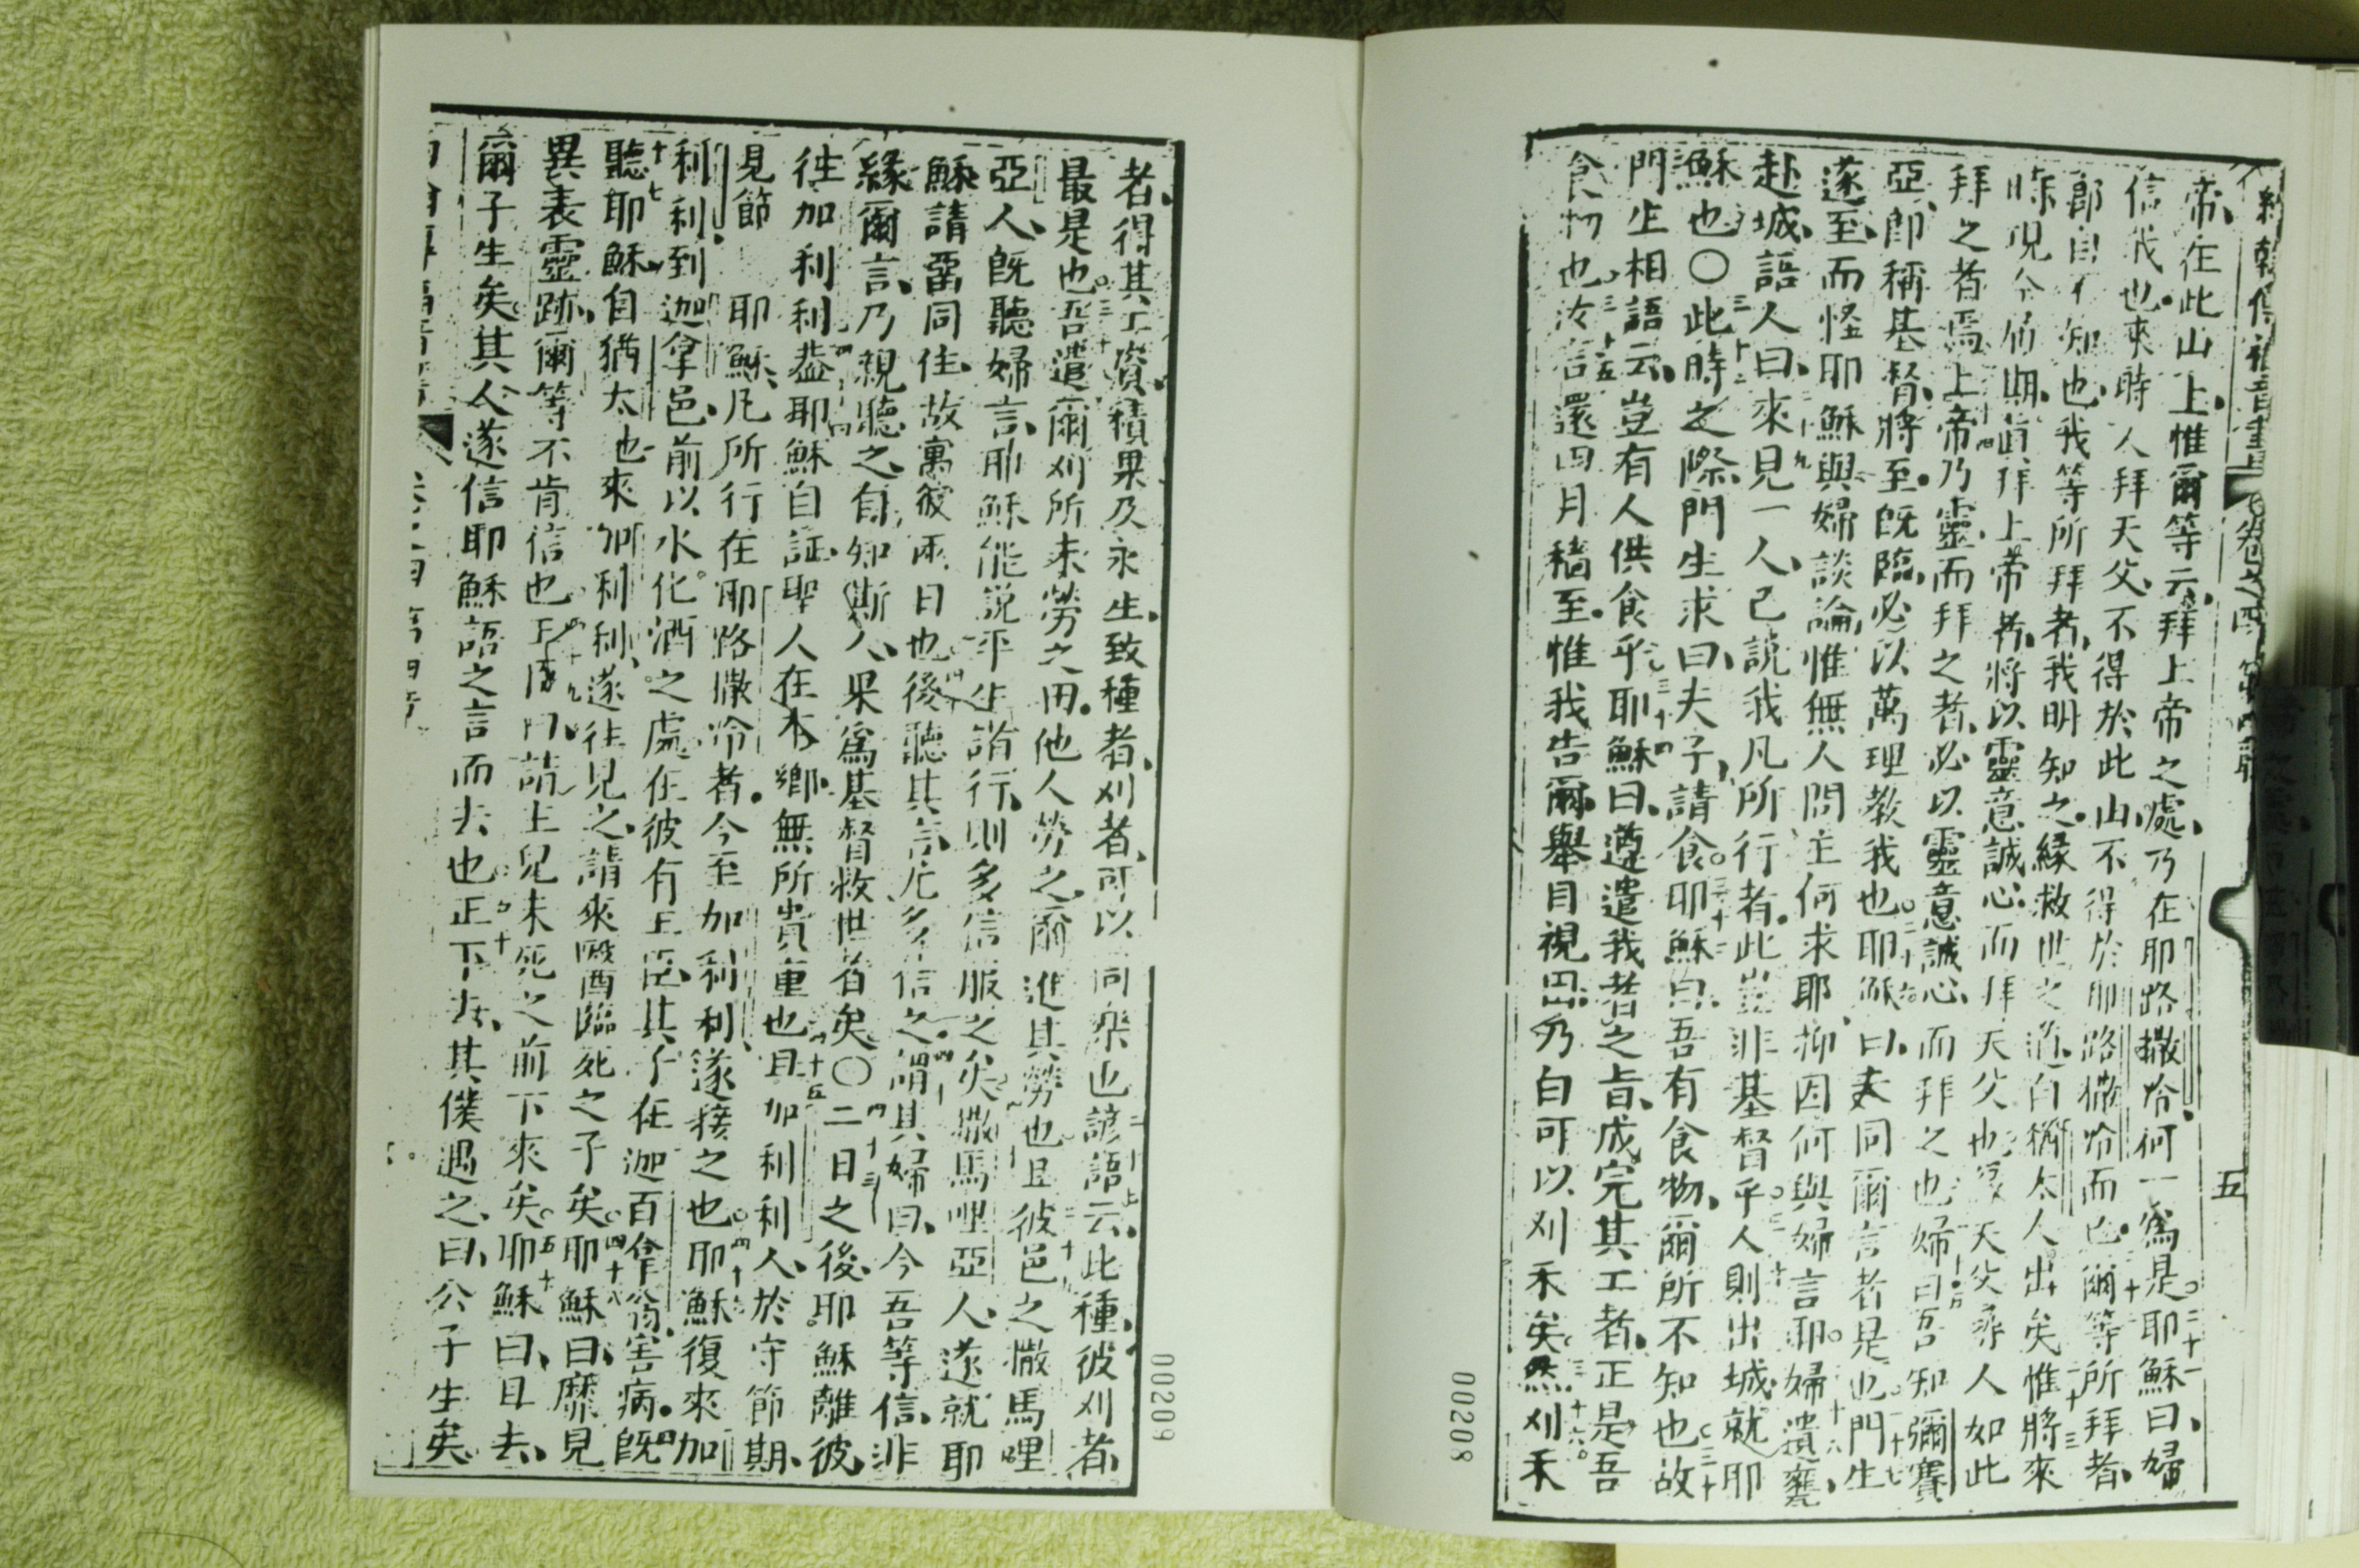 約翰傳福音書 卷之四 第四章 五
帝在此山上惟爾等云拜上帝之處乃在耶路撒冷何一為是耶穌曰婦
信我也來時人拜天父不得於此山不得於耶路撒冷而已爾等所拜者
卽自不知也我等所拜者我明知之緣救世之道自猶太人出矣惟將來
時現今屆期眞拜上帝者將以靈意誠心而拜天父也天父尋人如此
拜之者焉上帝乃靈而拜之者必以靈意誠心而拜之也婦曰吾知彌賽
亞卽稱基督將至旣臨必以萬理教我也耶穌曰夫同爾言者是也門生
遂至而怪耶穌與婦談論惟無人問主何求耶抑因何與婦言耶婦遺甕
赴城語人曰來見一人已說我凡所行者此豈非基督乎人則出城就耶
穌也〇此時之際門生求曰夫子請食耶穌曰吾有食物爾所不知也故
門生相語云豈有人供食乎耶穌曰遵遣我者之旨成完其工者正是吾
食物也汝言還四月穡至惟我告爾舉目視田乃白可以刈禾矣然刈禾
00208
者得其工資積果及永生致種者刈者可以同樂也諺語云此種彼刈者
最是也吾遣爾刈所未勞之田他人勞之爾進其勞也且彼邑之撒馬哩
亞人旣聽婦言耶穌能說平生諸行則多信服之矣撒馬哩亞人遂就耶
穌請畱同住故寓彼兩日也後聽其言尤多信之謂其婦曰今吾等信非
緣爾言乃親聽之自知斯人果為基督救世者矣〇二日之後耶穌離彼
往加利利葢耶穌自証聖人在本鄉無所貴重也且加利利人於守節期
見節 耶穌凡所行在耶路撒冷者今至加利利遂接之也耶穌復來加
利利到迦拿邑前以水化酒之處在彼有王臣其子在迦百拿翁害病旣
聽耶穌自猶太也來加利利遂往見之請來醫臨死之子矣耶穌曰靡見
異表靈跡爾等不肯信也王臣曰請主兒未死之前下來矣耶穌曰且去
爾子生矣其人遂信耶穌語之言而去也正下去其僕遇之曰公子生矣
00209